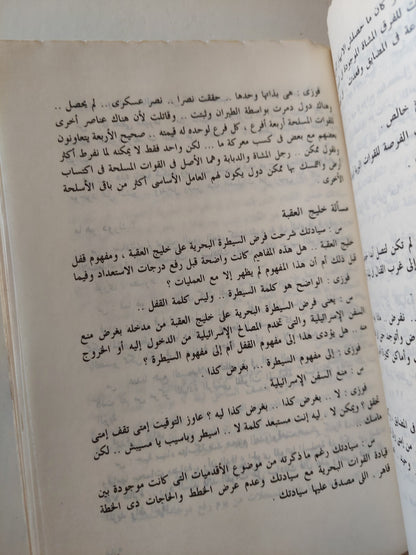 فوزى : هى بذاتها وحدها .. حققت نصرا .. نصر عسكرى .. لم يحصل ..
وهناك دول دمرت بواسطة الطيران وثبتت .. وقاتلت لأن هناك عناصر أخرى
للقوات المسلحة أربعة أفرع ، كل فرع لوحده له قيمته .. صحيح الأربعة يتعاونون
بعضهم مع بعض فى كسب معركة ما ... لكن واحد فقط لا يمكنه لما نفرط أكثر
ونقول ممكن .. رجل المشاة والدبابة وهما الأصل فى القوات المسلحة فى اكتساب
أرض والتمسك بها ممكن دول يكون لهم العامل الأساسى أكثر من باقى الأسلحة
الأخرى .
مسألة خليج العقبة
س : سيادتك شرحت فرض السيطرة البحرية على خليج العقبة ، ومفهوم قفل
خليج العقبة .. هل هذه المفاهيم كانت واضحة قبل رفع درجات الاستعداد وفيما
قبل ذلك أم أن هذا المفهوم لم يظهر إلا مع العمليات ؟
فوزى : الواضح هو كلمة السيطرة .. وليس كلمة القفل ..
س : يعنى فرض السيطرة البحرية على خليج العقبة من مدخله بغرض منع
السفن الإسرائيلية والتى تخدم المصالح الإسرائيلية من الدخول إليه أو الخروج
منه .. هل يؤدى هذا إلى مفهوم القفل أم إلى مفهوم السيطرة ؟
فوزى : إلى مفهوم السيطرة ... بغرض كذا .
س : منع السفن الإسرائيلية .
فوزى : لا .. بغرض كذا .. بغرض كذا ليه ؟ عاوز التوقيت إمتى تقف إمتى
تخنق ؟ ويمكن لا . ليه إنت مستبعد كلمة لا .. اسيطر وباسيب يا مسيبش .. لكن
ماسك ..
س : سيادتك رغم ما ذكرته من موضوع الأقدميات التى كانت موجودة بين
قيادة القوات البحرية مع سيادتك وعدم عرض الخطط والحاجات دى الخطة
قاهر . اللى مصدق عليها سيادتك .
خالص .